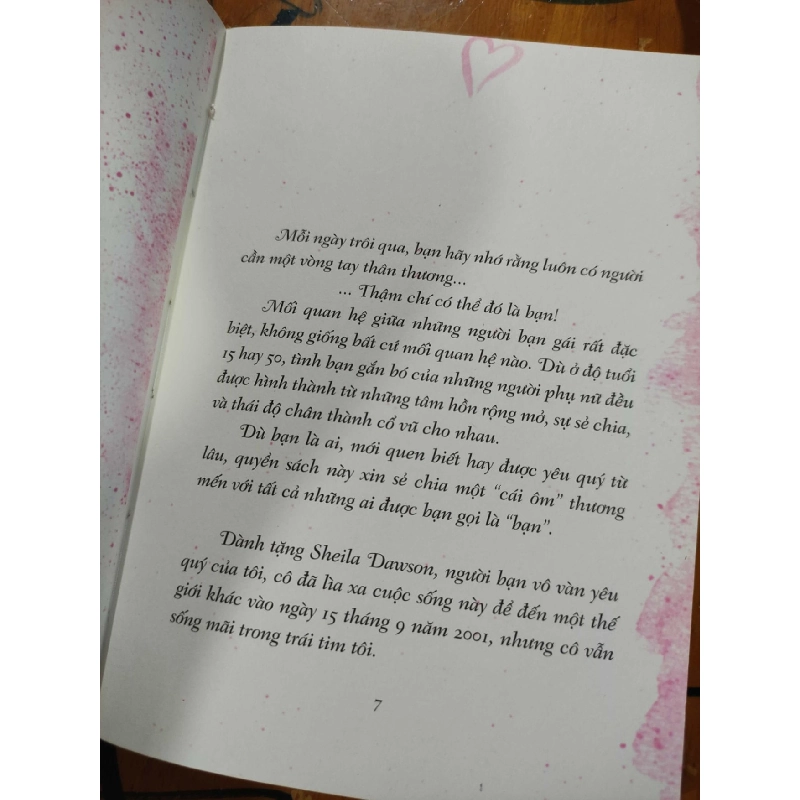 Mỗi ngày trôi qua, bạn hãy nhớ rằng luôn có người
cần một vòng tay thân thương...
... Thậm chí có thể đó là bạn!
Mối quan hệ giữa những người bạn gái rất đặc
biệt, không giống bất cứ mối quan hệ nào. Dù ở độ tuổi
15 hay 50, tình bạn gắn bó của những người phụ nữ đều
được hình thành từ những tâm hồn rộng mở, sự sẻ chia,
và thái độ chân thành cổ vũ cho nhau.
Dù bạn là ai, mới quen biết hay được yêu quý từ
lâu, quyển sách này xin sẻ chia một “cái ôm” thương
mến với tất cả những ai được bạn gọi là “bạn”.
Dành tặng Sheila Dawson, người bạn vô vàn yêu
quý của tôi, cô đã lìa xa cuộc sống này để đến một thế
giới khác vào ngày 15 tháng 9 năm 2001, nhưng cô vẫn
sống mãi trong trái tim tôi.
7